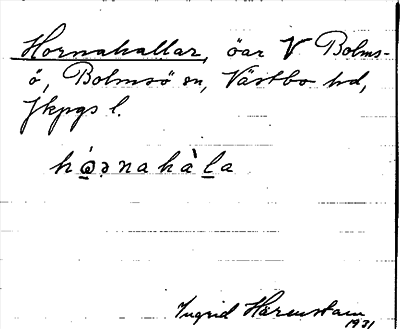 Hornahallar, öar V Bolms-
ö, Bolmsö sn, Västbo hd,
Jkpgs l.
Ingrid Härenstam
1931